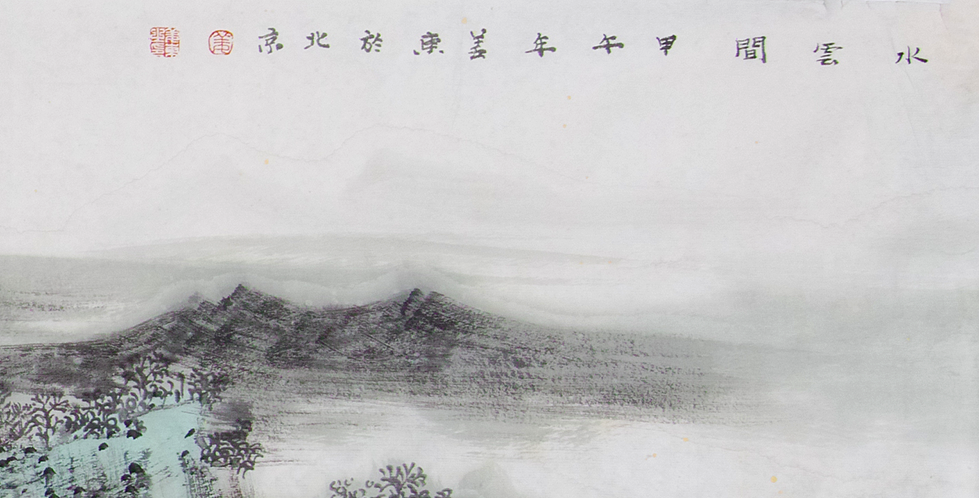 水雲間甲午年姜東於北京